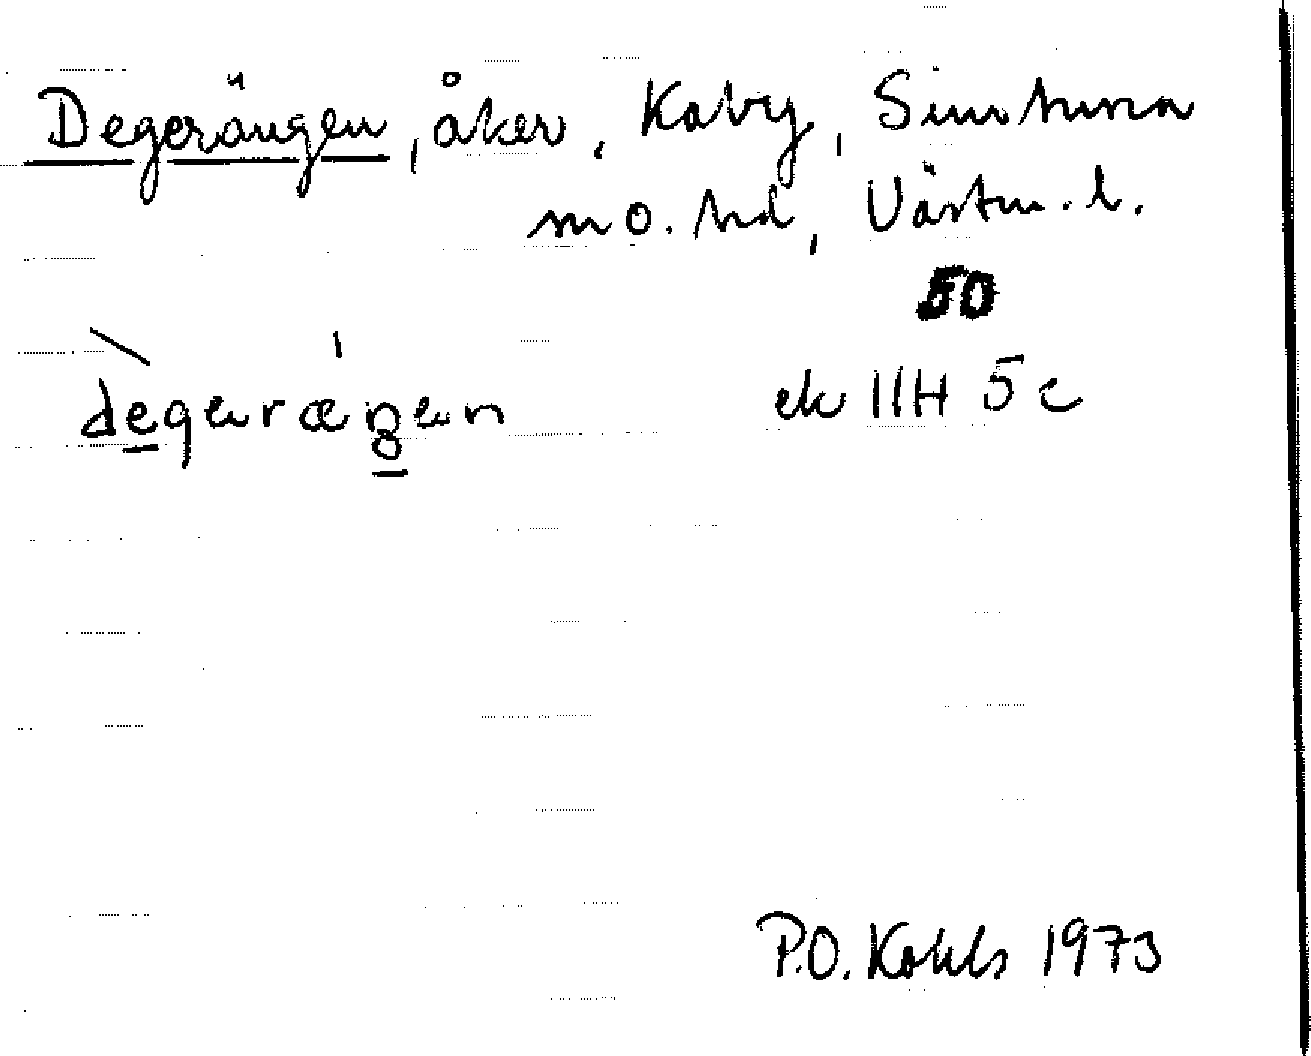 Degerängen, åker, Kaby, Simtuna
sn o. hd, Västm. l.
50
degerængen
ek 11H 5c
P.O. Kohls 1973